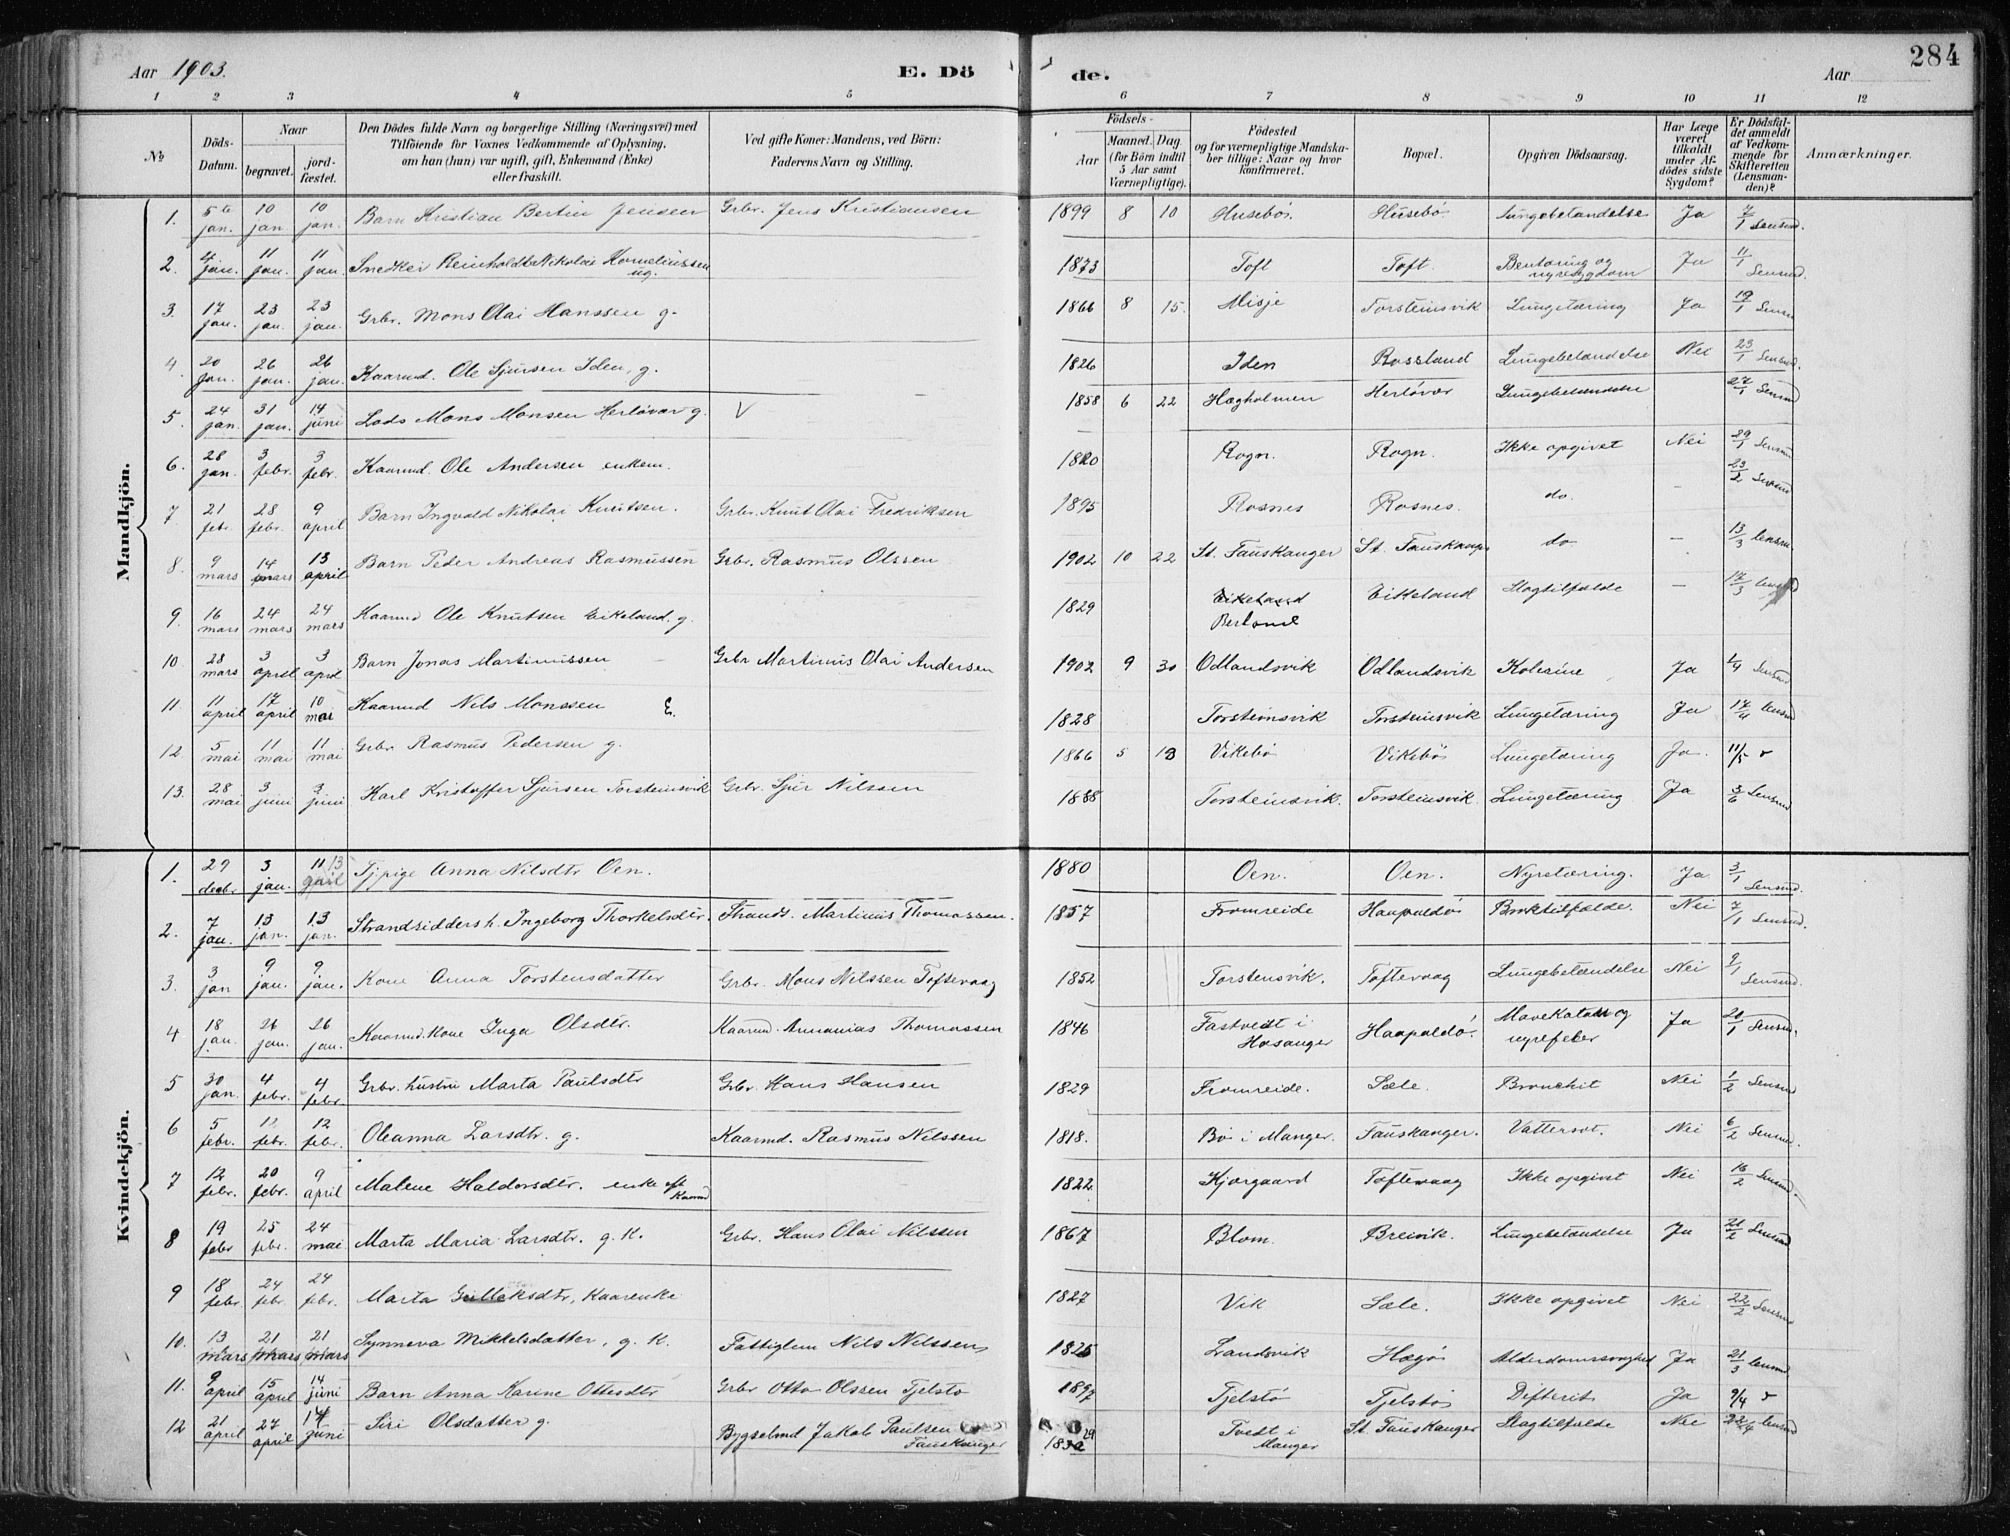 284
Aar 1903. E. Dö de. Aar
1 2 3 4 5 6 7 8 9 10 11 12
№ Döds-Datum. Naar begravet. jord-fæstet. Den Dödes fulde Navn og borgerlige Stilling (Næringsvei) med Tilföiende for Voxnes Vedkommende af Oplysning, om han (hun) var ugift, gift, Enkemand (Enke) eller fraskilt. Ved gifte Koner: Mandens, ved Börn: Faderens Navn og Stilling. Födsels- Aar Maaned. Dag (for Börn indtil 5 Aar samt Værnepligtige). Födested og for værnepligtige Mandskaber tillige: Naar og hvor konfirmeret. Bopæl. Opgiven Dödsaarsag. Har Læge været tilkaldt under Afdödes sidste Sygdom? Er Dödsfaldet anmeldt af Vedkommende for Skifteretten (Lensmanden)? Anmærkninger.
Mandkjön.
1. 5te jan. 10 jan 10 jan. Barn Kristian Bertin Jensen Grbr. Jens Kristiansen 1899 8 10 Husebö. Husebö. Lungebetændelse Ja 7/1 Lensmd.
2. 4 jan. 11 jan. 11 jan. Snedker Reinholdt Nikolai Korneliussen ug. 1873 Toft Toft. Bentæring og nyresygdom Ja 11/1 Lensmd.
3. 17 jan. 23 jan. 23 jan. Grbr. Mons Olai Hanssen g. 1866 8 15. Misje Torsteinsvik Lungetæring Ja 19/1 Lensm
4. 20 jan. 26 jan. 26 jan. Kaarmd. Ole Sjursen Iden, g. 1826 Iden Rossland Lungebetændelse Nei 23/1 Lensmd.
5. 24 jan. 31 jan. 14 juni Lods Mons Monsen Herlövær g. V 1858 6 22 Hægholmen Herlövær Lungebetændelse 27/1 Lensmd
6. 28 jan. 3 febr. 3 febr. Kaarmd. Ole Andersen enkem. 1820 Rogn. Rogn. Ikke opgivet Nei 29/1 Lensmd
7 21 febr. 28 febr. 9 april Barn Ingvald Nikolai Knutsen. Grbr. Knut Olai Fredriksen 1895 Rosnes Rosnes. do. - 23/2 Lensmd
8. 9 mars 14 mars 13 april Barn Peder Andreas Rasmussen Grbr. Rasmus Olssen 1902 10 22 St. Fauskanger St. Fauskang. do - 13/3 lensm.
9. 16 mars 24 mars 24 mars Kaarmd Ole Knutsen Eikeland. g. 1829 Eikeland Berland Eikeland Slagtilfælde - 17/3 lensmd
10. 28 mars 3 april 3 april Barn Jonas Martinussen Grbr Martinus Olai Andersen 1902 9 30 Odlandsvik Odlandsvik Kolerine Ja 1/4 Lensmd
11. 11 april 17 april 10 mai Kaarmd Nils Monssen E. 1828 Torsteinsvik Torsteinsvik Lungetæring Ja 17/4 lensmd
12. 5 mai 11 mai 11 mai Grbr. Rasmus Pedersen g. 1866 5 13 Vikebö Vikebö Lungetæring Ja. 11/5
13. 28 mai 3 juni 3 juni Karl Kristoffer Sjursen Torsteinsvik Grbr. Sjur Nilssen 1888 Torsteinsvik. Torsteinsvik. Lungetæring Ja 3/6 Lensmd
Kvindekjön.
1. 29 decbr. 3 jan. 11 Tjpige Anna Nilsdtr Oen. 1880 Oen. Oen. Nyretæring. Ja 3/1 Lensmd.
2. 7 jan. 13 jan. 13 jan. Strandsidders h. Ingeborg Thorkelsdtr. Strands. Martinus Thomassen. 1857 Fromreide Haapoldö Broktilfælde. Nei 7/1 Lensmd.
3. 3 jan 9 jan. 9 jan. Kone Anna Torstensdatter Grbr. Mons Nilssen Toftevaag 1852 Torstensvik. Toftevaag Lungebetændelse Nei 9/1 Lensmd.
4 18 jan. 26 jan. 26 jan. Kaarmd. kone Inga Olsdtr. Kaarmd. Annanias Thomassen 1846 Fastvedt i Hosanger Haapoldö. Mavekatarr og nyrefeber Ja 20/1 Lensm.
5 30 jan. 4 febr. 4 febr. Grbr. hustru Marta Paulsdtr Grbr. Hans Hansen 1829 Fromreide. Sæle. Bronchit Nei 1/2 Lensmd
6 5 febr. 12 febr. 12 febr. Oleanna Larsdtr. g. Kaarmd. Rasmus Nilssen 1818. Bö i Manger. Fauskanger. Vattersot. Nei 6/2 Lensmd.
7 12 febr. 20 febr. 9 april Malene Haldorsdtr. enke eft Kaarmd 1822. Kjærgaard Toftevaag Ikke opgivet Nei 16/2 Lensmd.
8 19 febr 25 febr. 24 mai Marta Maria Larsdtr. g. K. Grbr. Hans Olai Nilssen 1867 Blom. Breivik. Lungebetændelse Ja 21/2 Lensmd
9 18 febr. 24 febr. 24 febr. Marta Gullaksdtr, Kaarenke 1827 Vik Sæle. Ikke opgivet Nei. 22/2 Lensmd
10. 13 mars 21 mars 21 mars Synneva Mikkelsdatter, g. K. Fattiglem Nils Nilssen, 1825 Landsvik Hægö Alderdomssvaghed Ja 21/3 lensmd
11. 9 april 15 april 14 juni Barn Anna Karine Ottesdtr Grbr Otto Olssen Tjelstö 1897 Tjelstö Tjelstö Difterit Ja 9/4
12 21 april 27 april 14 juni Siri Olsdatter g. Bygselmd Jakob Paulsen Fauskanger 29 Tvedt i Manger St. Fauskanger Slagtilfælde Nei 22/4 lensmd